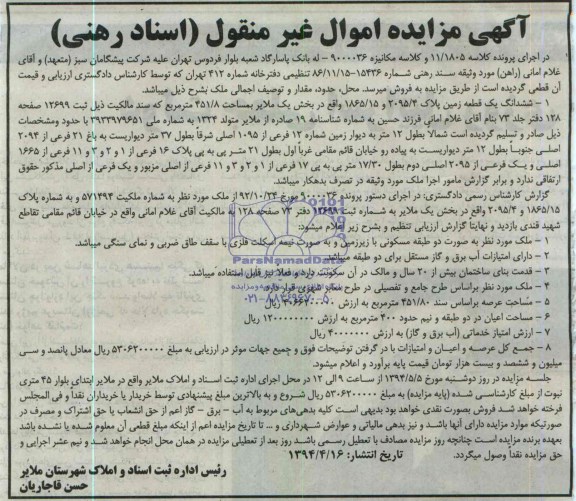 آگهی مزایده اموال غیر منقول (اسناد رهنی)
در اجرای پرونده کلاسه ۱۱/۱۸۰۵ و کلاسه مکانیزه ۹۰۰۰۰۳۶ - له بانک پاسارگاد شعبه بلوار فردوس تهران علیه شرکت پیشگامان سبز (متعهد) و آقای
غلام امانی (راهن) مورد وثیقه سند رهنی شماره ۱۵۴۳۶-۸۶/۱۱/۱۵ تنظیمی دفترخانه شماره ۴۱۲ تهران که توسط کارشناس دادگستری ارزیابی و قیمت
آن قطعی گردیده است از طریق مزایده به فروش میرسد. محل، حدود، مقدار و توصیف اجمالی ملک بشرح ذیل میباشد.
۱ - ششدانگ یک قطعه زمین پلاک ۲۰۹۵/۴ و ۱۸۶۵/۱۵ واقع در بخش یک ملایر بمساحت ۴۵۱/۸ مترمربع که سند مالکیت ذیل ثبت ۱۲۶۹۹ صفحه
۱۲۸ دفتر جلد ۷۳ بنام آقای غلام امانی فرزند حسین به شماره شناسنامه ۱۹ صادره از ملایر متولد ۱۳۲۴ به شماره ملی ۳۹۳۳۹۷۹۶۵۱ با حدود ومشخصات
ذیل صادر و تسلیم گردیده است شمالاً بطول ۱۲ متر به دیوار زمین شماره ۱۲ فرعی از ۱۰۹۵ اصلی شرقاً بطول ۳۷ متر دیواریست به باغ ۲۱ فرعی از ۲۰۹۴
اصلی جنوباً بطول ۱۲ متر دیواریست به پیاده رو خیابان قائم مقامی غرباً اول بطول ۲۱ متر پی به پی پلاک ۱۶ فرعی از ۱ و ۲ و ۳ و ۱۱ فرعی از ۱۶۶۵
اصلی و یک فرعی از ۲۰۹۵ اصلی دوم بطول ۱۷/۳۰ متر پی به پی ۱۷ فرعی از ۱ و ۲ و ۳ و ۱۱ فرعی از اصلی مزبور و یک فرعی از اصلی مذکور حقوق
ارتفاقی ندارد و برابر گزارش مامور اجرا ملک مورد وثیقه در تصرف بدهکار میباشد.
گزارش کارشناس رسمی دادگستری: در اجرای دستور پرونده ۱۰۰۰۰۳۶ مورخ ۹۲/۱۰/۲۳ از ملک مورد نظر به شماره ملکیت ۵۷۱۴۹۴ و به شماره پلاک
۱۸۶۵/۱۵ و ۲۰۹۵/۴ واقع در بخش یک ملایر به شماره ثبت ۱۲۶۹۹ دفتر ۷۳ صفحه ۱۲۸ به مالکیت آقای غلام امانی واقع در خیابان قائم مقامی تقاطع
شهید قندی بازدید و نهایتاً گزارش ارزیابی تنظیم و بشرح زیر اعلام میشود:
۱ - ملک مورد نظر به صورت دو طبقه مسکونی با زیرزمین و به صورت نیمه اسکلت فلزی با سقف طاق ضربی و نمای سنگی میباشد.
۲ - دارای امتیازات آب برق و گاز مستقل برای دو طبقه میباشد.
۳ - قدمت بنای ساختمان بیش از ۲۰ سال و مالک در آن سکونت دارد و فعلا نیز قابل استفاده میباشد.
۴ - ملک مورد نظر براساس طرح جامع و تفصیلی در طرح شهری قرار دارد
۵ - مساحت عرصه براساس سند ۴۵۱/۸۰ مترمربع به ارزش ریال
۶ - مساحت اعیان در دو طبقه و نیم حدود ۴۰۰ مترمربع به ارزش ۱۲۰۰۰۰۰۰۰۰ ریال
۷ - ارزش امتیاز خدماتی (آب برق و گاز) به ارزش ۴۰۰۰۰۰۰۰ ریال
۸ - جمع کل عرصه و اعیان و امتیازات با در گرفتن توضیحات فوق و جمیع جهات موثر در ارزیابی به مبلغ ۵۳۰۶۲۰۰۰۰۰ ریال معادل پانصد و سی
میلیون و ششصد و بیست هزار تومان قیمت پایه برآورد و اعلام میشود.
جلسه مزایده در روز دوشنبه مورخ ۱۳۹۴/۵/۵ از ساعت ۹ الی ۱۲ در محل اجرای اداره ثبت اسناد و املاک ملایر واقع در ملایر ابتدای بلوار ۴۵ متری
نبوت از مبلغ کارشناسی شده (پایه مزایده) به مبلغ ۵۳۰۶۲۰۰۰۰۰ ریال شروع و به بالاترین مبلغ پیشنهادی توسط خریدار یا خریداران نقداً و فی المجلس
فرخته خواهد شد فروش بصورت نقدی خواهد بود بدیهی است کلیه بدهی‌های مربوط به آب - برق - گاز اعم از حق انشعاب یا حق اشتراک و مصرف در
صورتیکه موارد مزایده دارای آنها باشد و نیز بدهی مالیاتی و عوارض شهرداری و ... تا تاریخ مزایده اعم از اینکه مبلغ قطعی آن معلوم شده یا نشده باشد
بعهده برنده مزایده است چنانچه روز مزایده مصادف با تعطیل رسمی باشد روز بعد از تعطیلی مزایده در همان محل انجام خواهد شد و نیم عشر اجرایی و
حق مزایده نقداً وصول میگردد. تاریخ انتشار: ۱۳۹۴/۴/۱۶
رئیس اداره ثبت اسناد و املاک شهرستان ملایر
حسن قاجاریان
ParsNamadData
۰۲۱-۸۸۳۴۹۶۷۰-۵